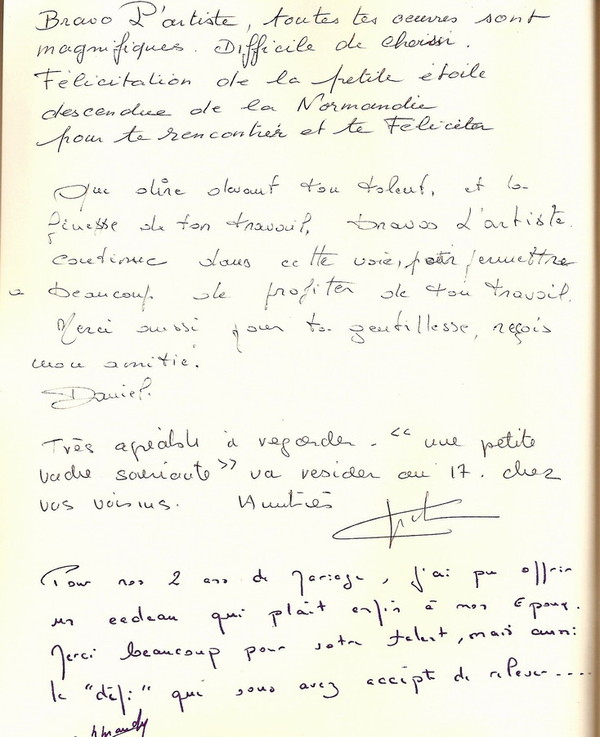 Bravo L'artiste, toutes tes oeuvres sont
magnifiques. Difficile de choisir.
Félicitation de la petite étoile
descendue de la Normandie
pour te rencontrer et te Féliciter
Que dire devant ton talent, et la
finesse de ton travail, bravo L'artiste.
continue dans cette voie, pour permettre
a beaucoup de profiter de ton travail.
Merci aussi pour ta gentillesse, reçois
mon amitié.
Daniel.
Très agréable à regarder. "une petite
vache souriante" va resider au 17. chez
vos voisins. Amitiés
Pour nos 2 ans de Mariage, j'ai pu offrir
un cadeau qui plait enfin à mon Epoux.
Merci beaucoup pour votre talent, mais aussi
le "défi" qui vous avez accept de relever.....